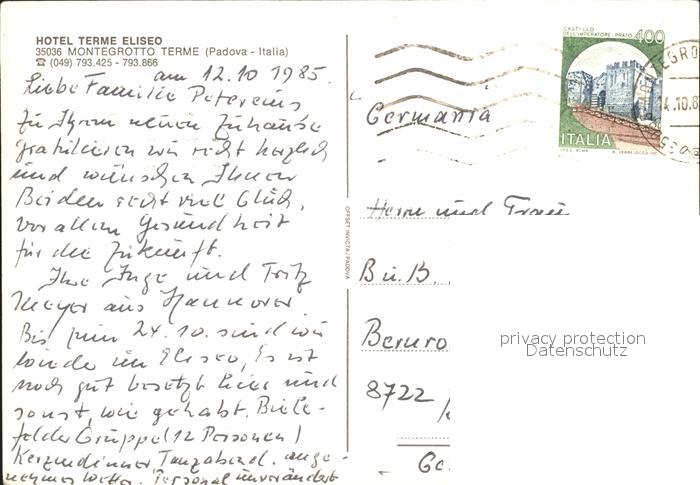 HOTEL TERME ELISEO
35036 MONTEGROTTO TERME (Padova - Italia)
☎ (049) 793.425 - 793.866
am 12.10 1985.
Liebe Familie Petereins
Zu Ihrem neuen Zuhause
gratulieren wir recht herzlich
und wünschen Ihnen
Beiden recht viel Glück,
vor allem Gesundheit
für die Zukunft.
Ihre Inge und Fritz
Meyer aus Hannover.
Bis zum 24.10. sind wir
wieder im Eliseo, Es ist
noch gut besetzt hier und
sonst, wie gehabt. Biele-
felder Gruppe (12 Personen)
Kerzendinner Tanzabend. ange-
nehmes Wetter. Personal unverändert
OFFSET INVICTA-PADOVA
CASTELLO
DELL'IMPERATORE · PRATO
400
ITALIA
14.10.8
Germania
Herrn und Frau
Bu.B.
8722
privacy protection
Datenschutz